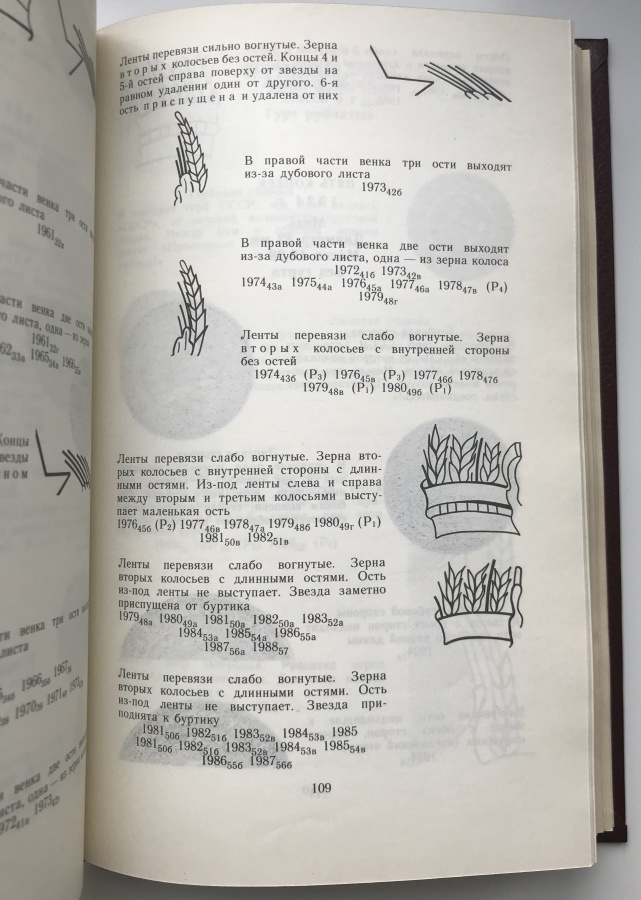 части венка три ости вы
вого листа
1961₂₂ₐ
части венка две ости
листа, одна — из зерна
Концы
везды
ном
венка три ости
листа
венка две ости
листа, одна — из зерна
Ленты перевязи сильно вогнутые. Зерна
вторых колосьев без остей. Концы 4 и
5-й остей справа поверху от звезды на
равном удалении один от другого. 6-я
ость приспущена и удалена от них
В правой части венка три ости выходят
из-за дубового листа
1973₄₂б
В правой части венка две ости выходят
из-за дубового листа, одна — из зерна колоса
1972₄₁б 1973₄₂в
1974₄₃а 1975₄₄а 1976₄₅а 1977₄₆а 1978₄₇в (Р₄)
1979₄₈г
Ленты перевязи слабо вогнутые. Зерна
вторых колосьев с внутренней стороны
без остей
1974₄₃б (Р₃) 1976₄₅в (Р₃) 1977₄₆б 1978₄₇б
1979₄₈в (Р₁) 1980₄₉б (Р₁)
Ленты перевязи слабо вогнутые. Зерна вто-
рых колосьев с внутренней стороны с длин-
ными остями. Из-под ленты слева и справа
между вторым и третьим колосьями высту-
пает маленькая ость
1976₄₅б (Р₂) 1977₄₆в 1978₄₇а 1979₄₈б 1980₄₉г (Р₁)
1981₅₀в 1982₅₁в
Ленты перевязи слабо вогнутые. Зерна
вторых колосьев с длинными остями. Ость
из-под ленты не выступает. Звезда заметно
приспущена от буртика
1979₄₈а 1980₄₉а 1981₅₀а 1982₅₀а 1983₅₂а
1984₅₃а 1985₅₄а 1986₅₅а
1987₅₆а 1988₅₇
Ленты перевязи слабо вогнутые. Зерна
вторых колосьев с длинными остями. Ость
из-под ленты не выступает. Звезда при-
поднята к буртику
1981₅₀б 1982₅₁б 1983₅₂в 1984₅₃в 1985
1981₅₀б 1982₅₁б 1983₅₂в 1984₅₃в 1985₅₄в
1986₅₅б 1987₅₆б
109